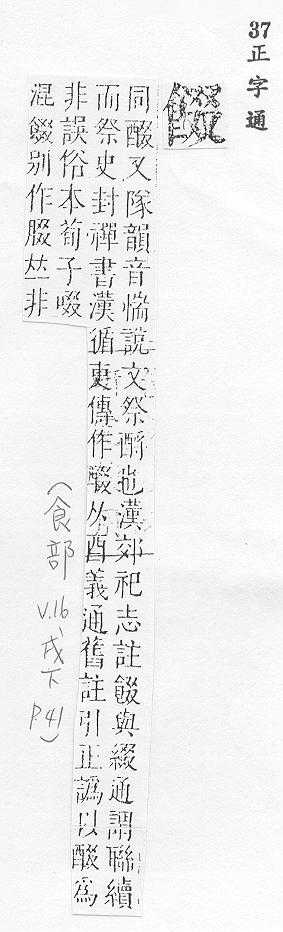 37正字通
餟
同醊又隊韻音惱說文祭酹也漢郊祀志註餟與綴通謂聯續
而祭史封禪書漢循吏傳作醊从酉義通舊註引正譌以醊為
非誤俗本荀子啜
混餟別作腏𠀤非
(食部
V.16、戌下
P.41)